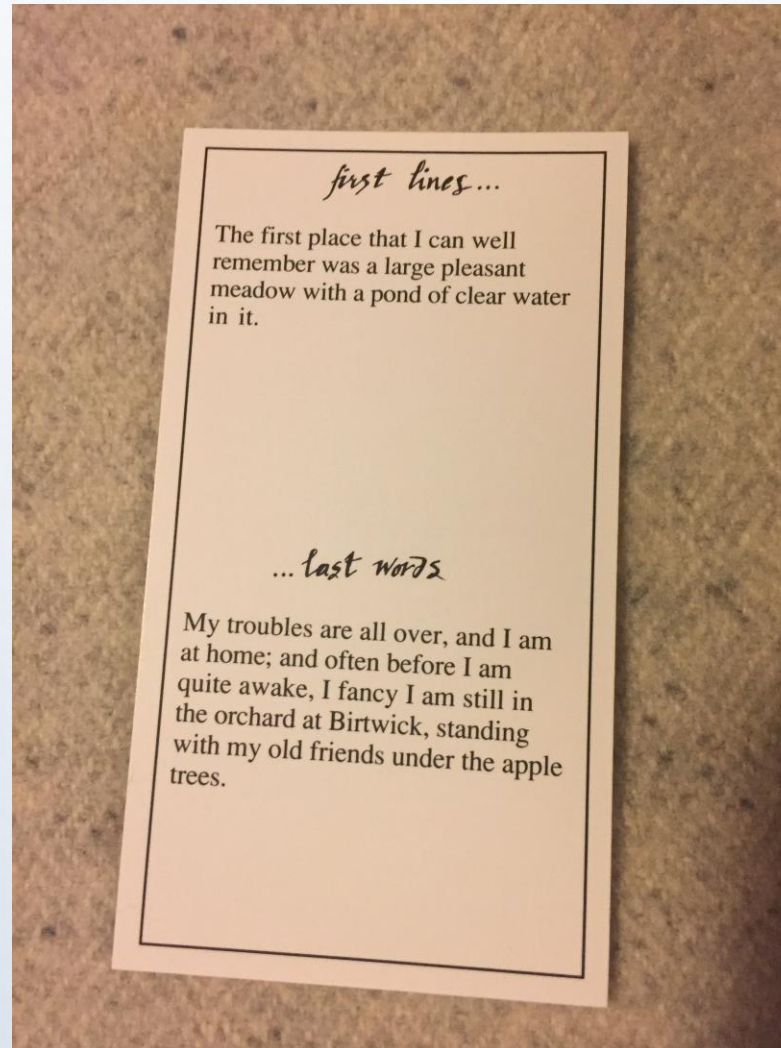 first lines...
The first place that I can well
remember was a large pleasant
meadow with a pond of clear water
in it.
...last words
My troubles are all over, and I am
at home; and often before I am
quite awake, I fancy I am still in
the orchard at Birtwick, standing
with my old friends under the apple
trees.